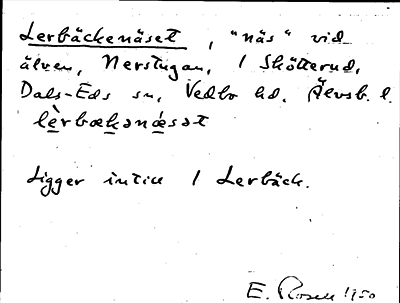 Lerbäckenäset, "näs" vid
älven, Nerstugan, 1 Skötterud,
Dals-Eds sn, Vedbo hd. Älvsb. l.
lèrbækənǽsət
Ligger intill 1 Lerbäck.
E. Rosell 1950